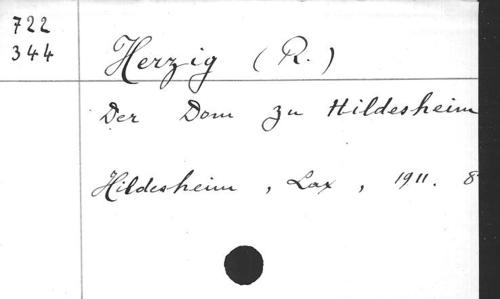 722
344
Herzig (R.)
Der Dom zu Hildesheim
Hildesheim, Lax, 1911. 8